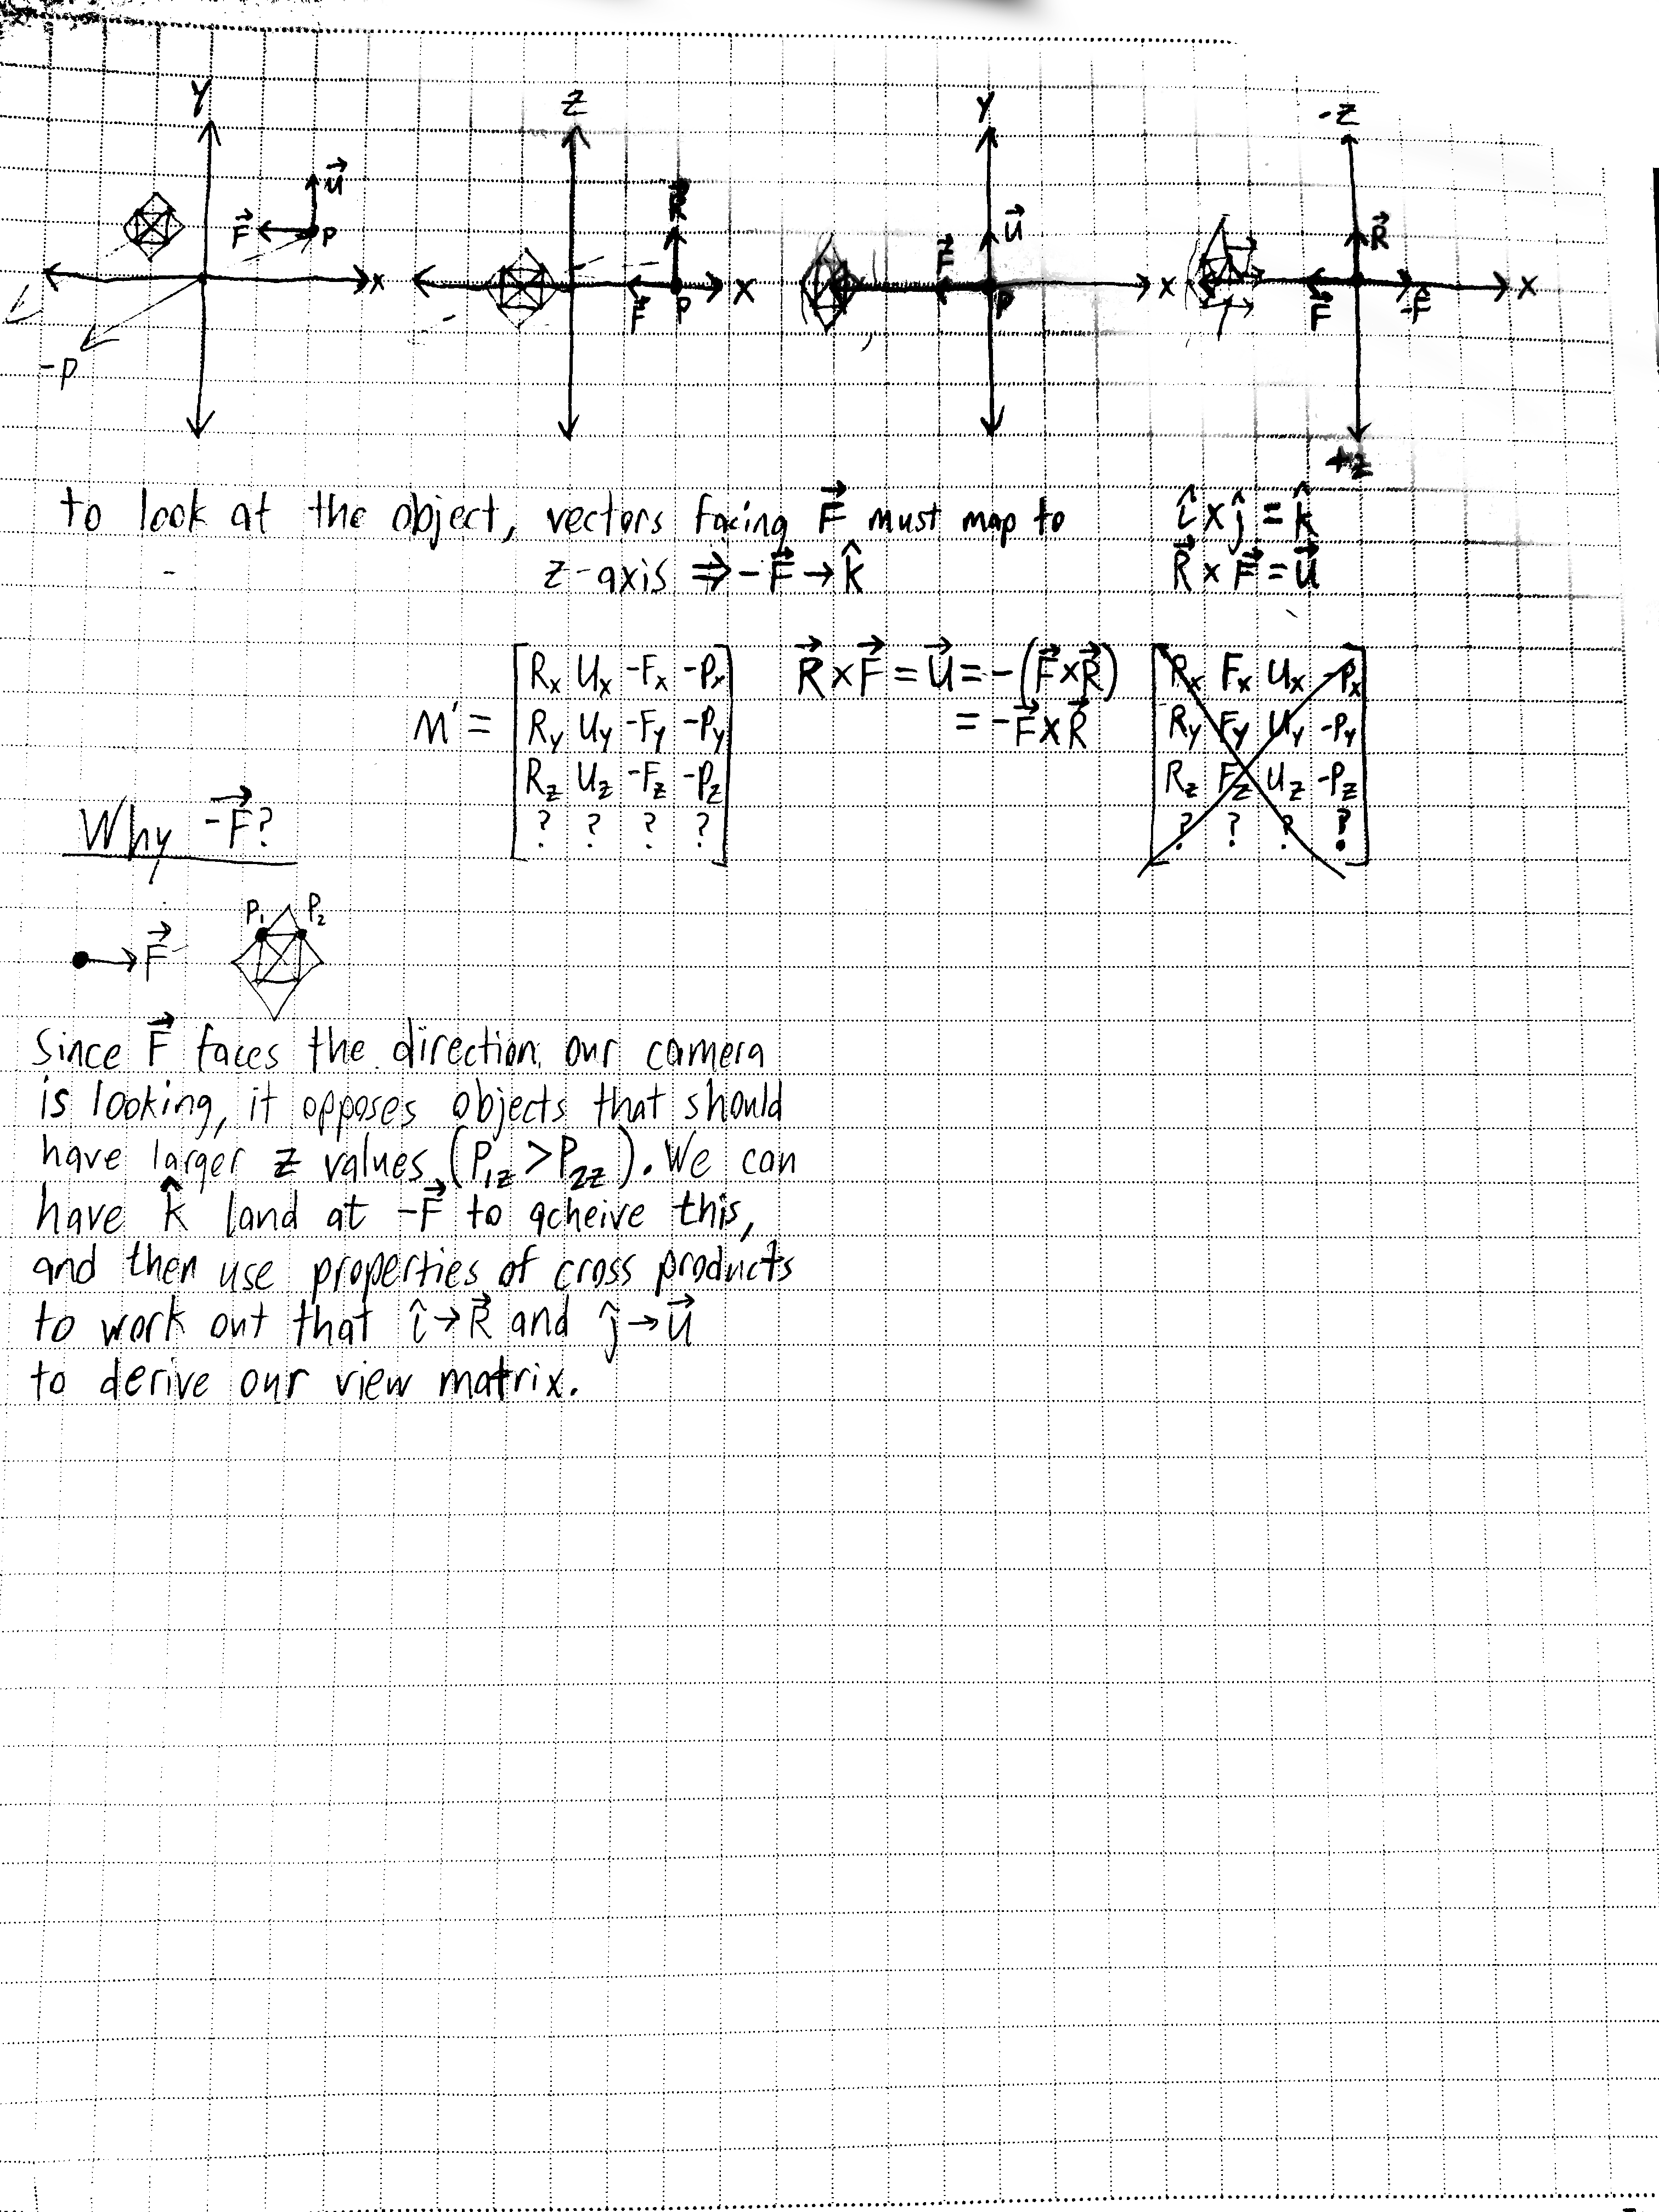 Y Z Y -Z
U⃗ F⃗ P x -P
R⃗ F⃗ P x
U⃗ F⃗ P x
R⃗ F⃗ -F⃗ x +z
to look at the object, vectors facing F⃗ must map to
z-axis ⇒ -F⃗ → k̂
î × ĵ = k̂
R⃗ × F⃗ = U⃗
M' = [Rx Ux -Fx -Px
Ry Uy -Fy -Py
Rz Uz -Fz -Pz
? ? ? ?]
R⃗ × F⃗ = U⃗ = -(F⃗ × R⃗)
= -F⃗ × R⃗
[Rx Fx Ux -Px
Ry Fy Uy -Py
Rz Fz Uz -Pz
? ? ? ?]
Why -F⃗?
F⃗ P₁ P₂
Since F⃗ faces the direction our camera
is looking, it opposes objects that should
have larger z values (P₁z > P₂z). We can
have k̂ land at -F⃗ to acheive this,
and then use properties of cross products
to work out that î → R⃗ and ĵ → U⃗
to derive our view matrix.